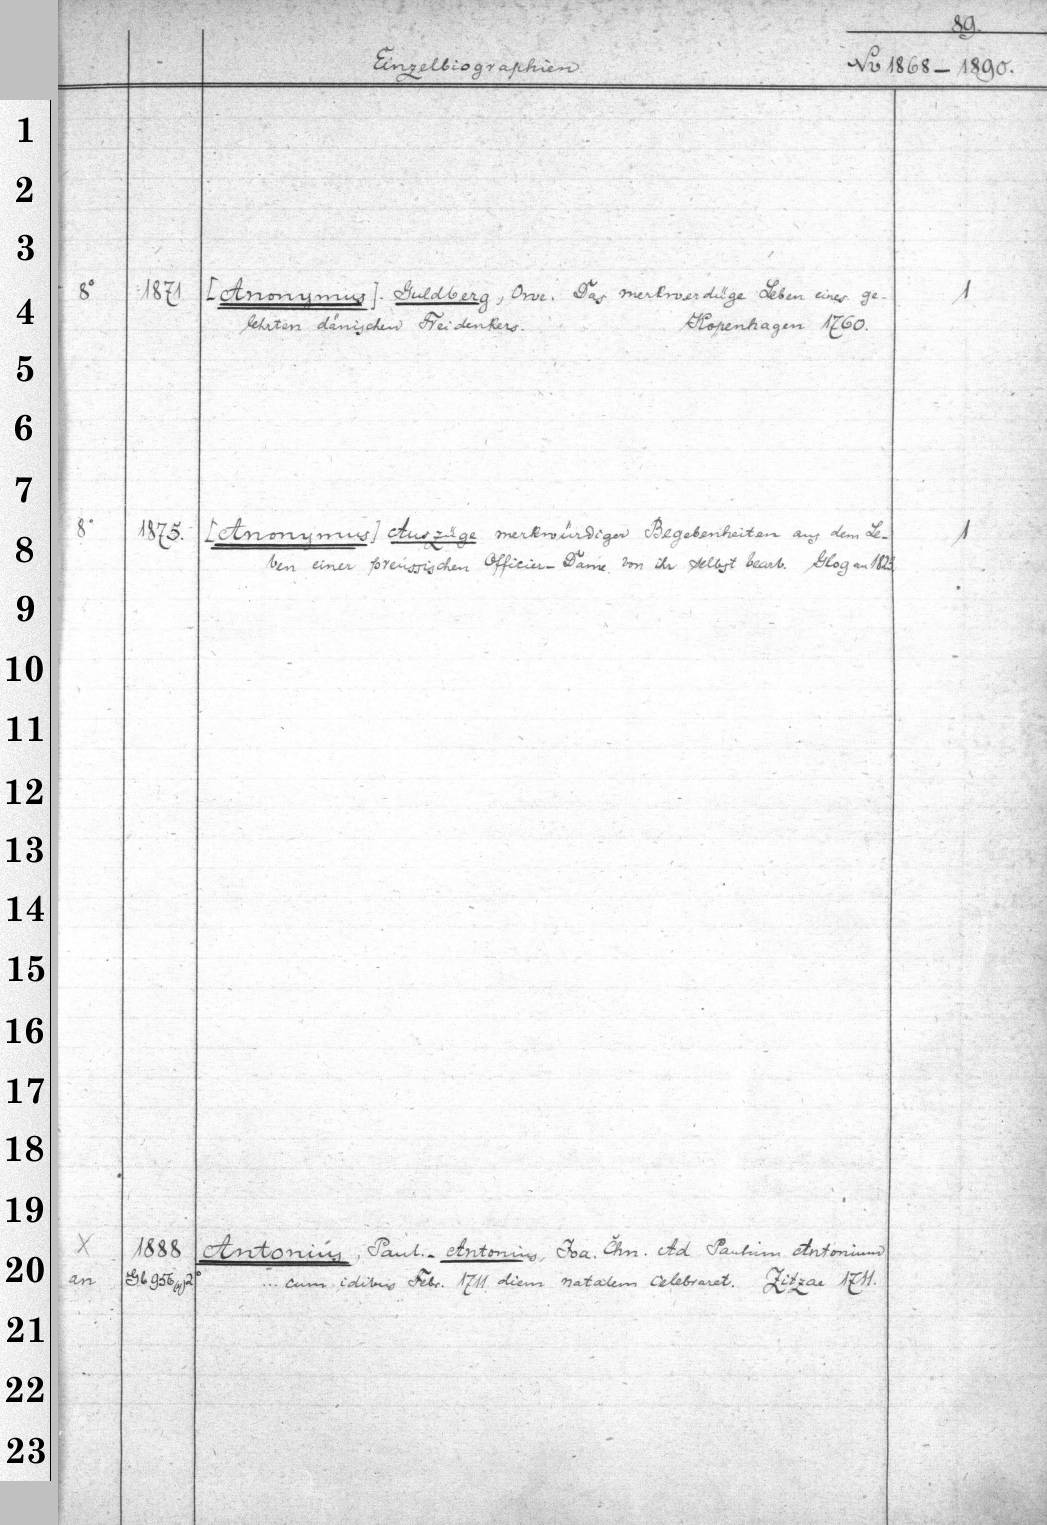 89.
Einzelbiographien
Nv 1868 – 1890.
1
2
3
8° 1871 [Anonymus]. Guldberg, Ove. Das merkwerdige Leben eines ge- 1
4
lehrten dänischen Freidenkers. Kopenhagen 1760.
5
6
7
8° 1875. [Anonymus] Auszüge merkwürdiger Begebenheiten aus dem Le- 1
8
ben einer preussischen Officier-Dame von ihr selbst bearb. Glogau 1823
9
10
11
12
13
14
15
16
17
18
19
X 1888 Antonius, Paul. – Antonius, Joa. Chn. Ad Paulum Antonium
20
an Gb 956 2° ... cum idibus Febr. 1711 diem natalem celebraret. Zitzae 1711.
21
22
23